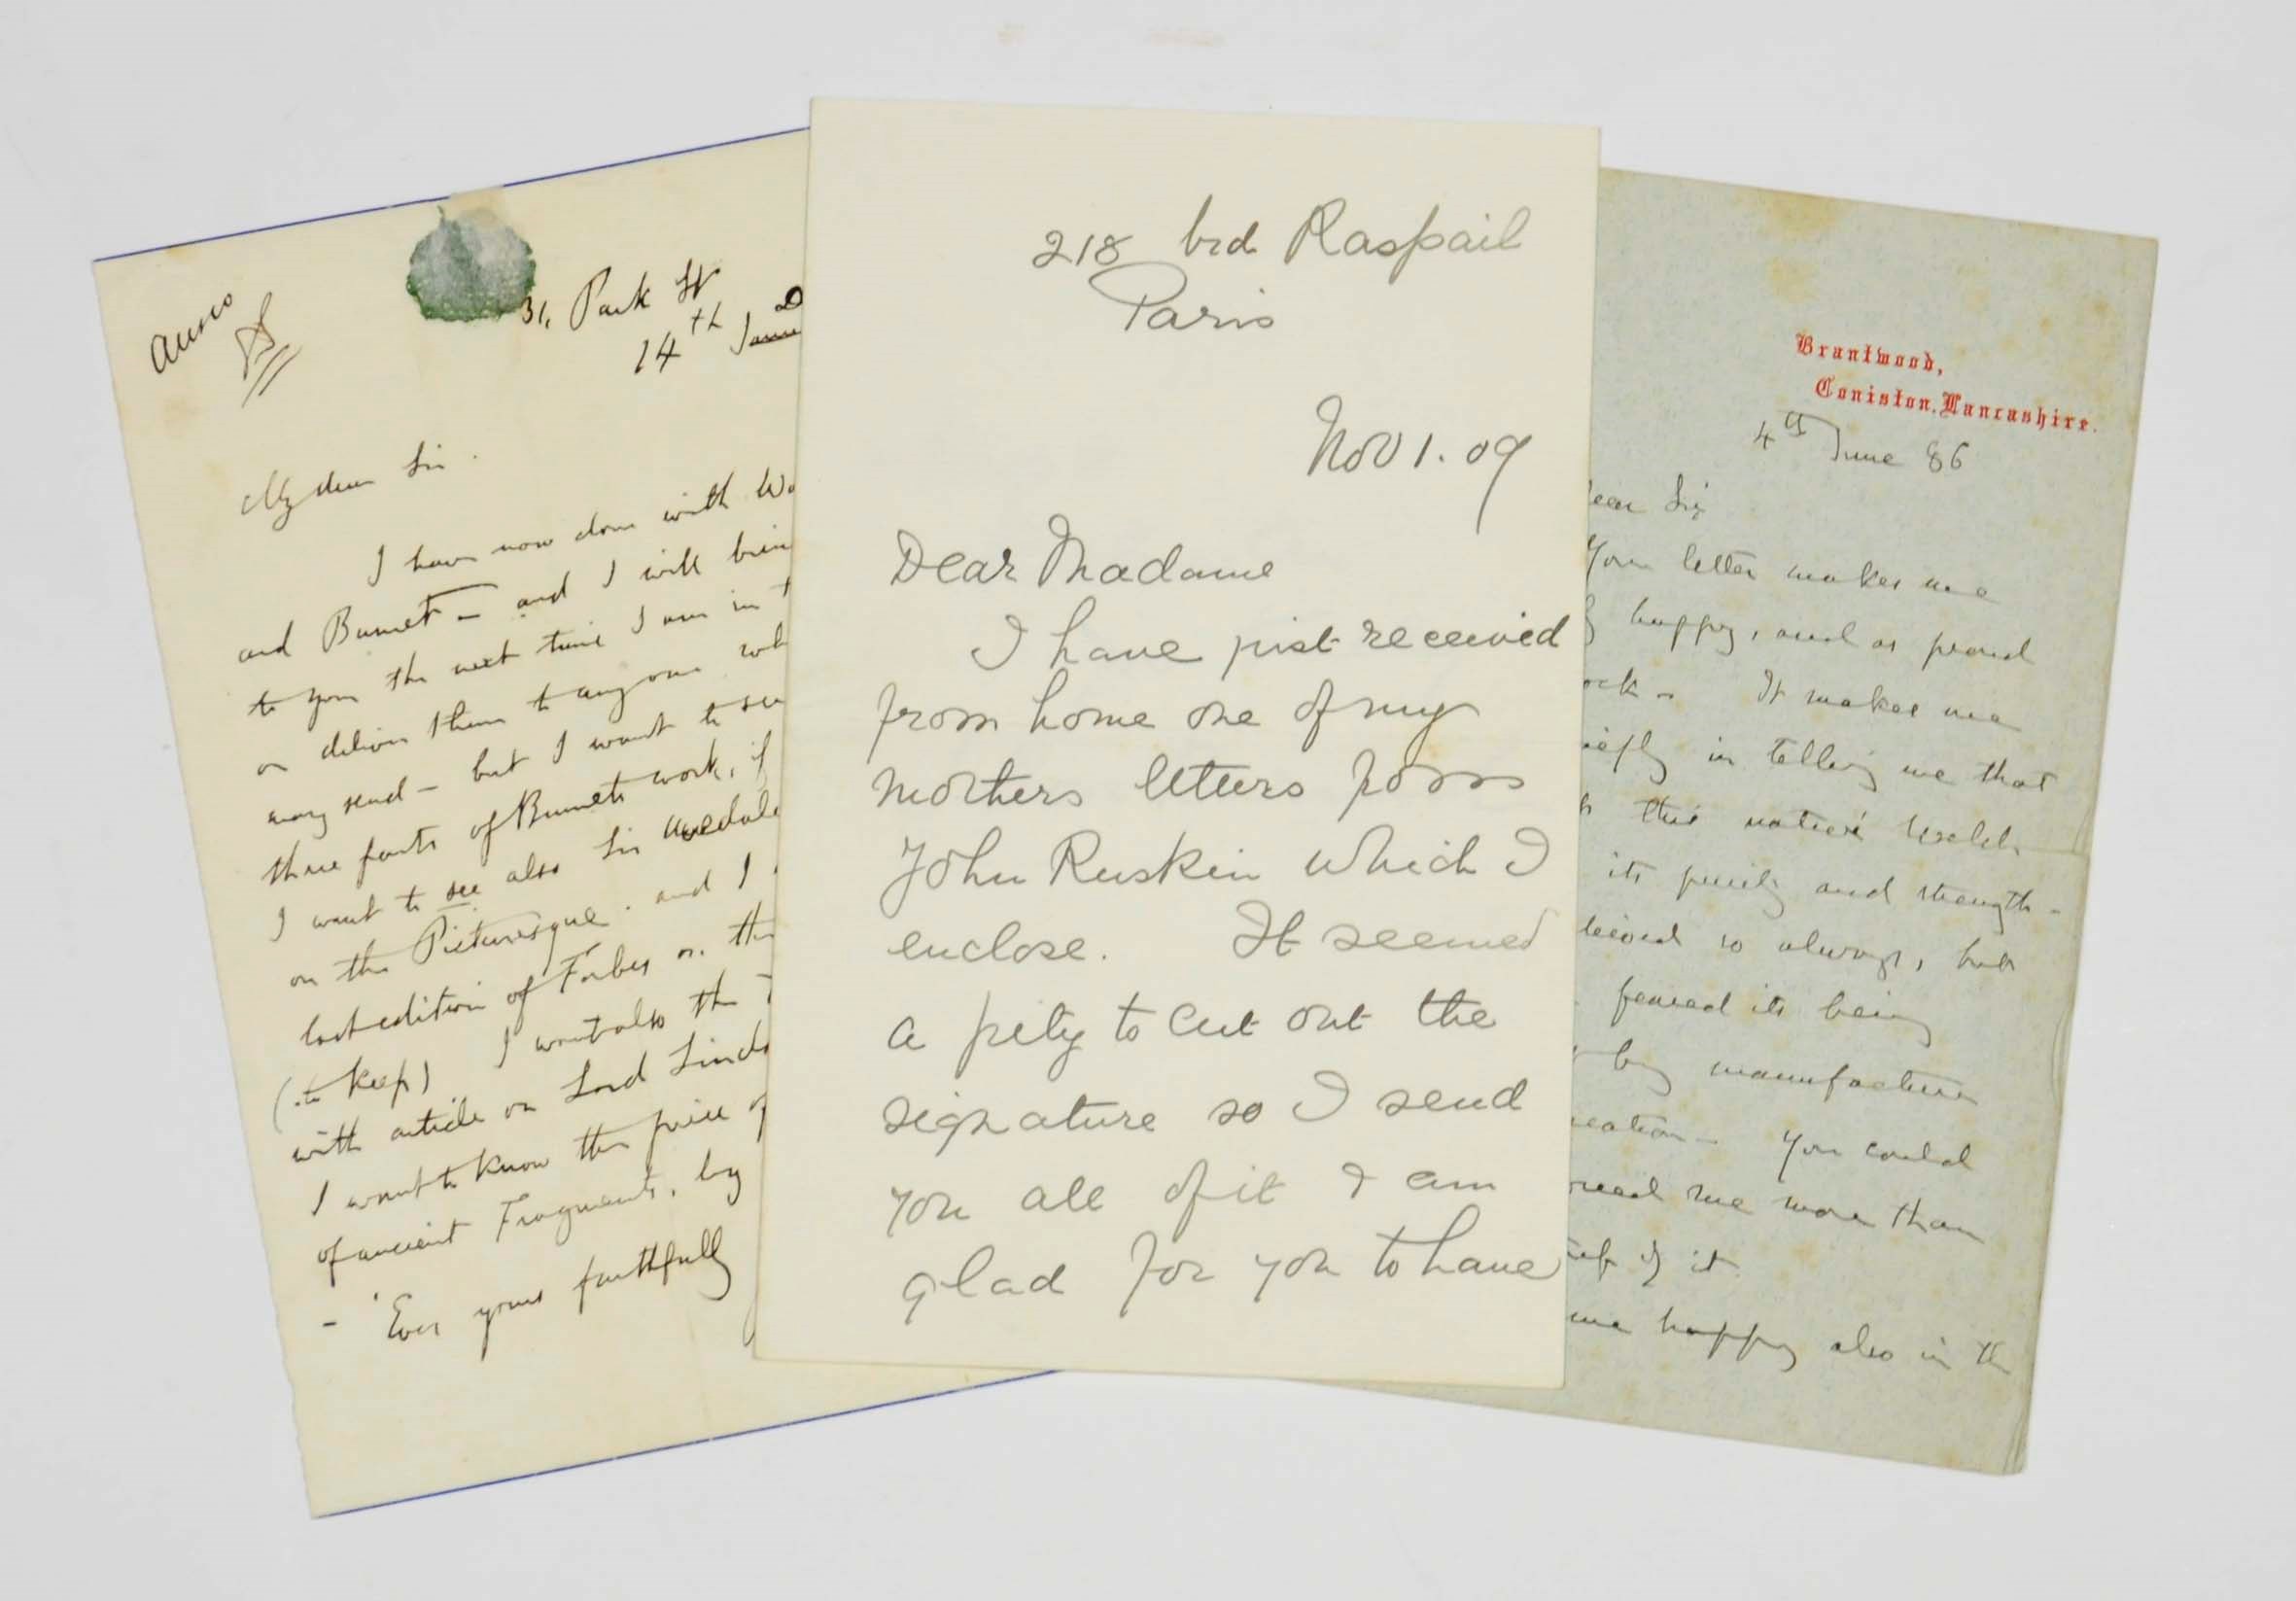 31, Park St
14th
My dear Sir.
I have now done with
and Burnet - and I will
to you the next time I am in
or deliver them to anyone
may send - but I want to see
three parts of Burnets work, if
I want to see also Sir Uvedale
on the Picturesque. and I
last edition of Forbes on the
(to keep) I want also the
with article on Lord
I want to know the price of
of ancient Fragments, by
- Ever yours faithfully
218 bvd Raspail
Paris
Nov 1. 09
Dear Madame
I have just received
from home one of my
mothers letters from
John Ruskin which I
enclose. It seemed
a pity to cut out the
signature so I send
you all of it I am
glad for you to have
Brantwood,
Coniston, Lancashire.
4th June 86
Sir
Your letter makes me
happy, and as proud
It makes me
in telling me that
this native
its purity and strength -
so always, but
feared its being
by manufacture
You could
me more than
of it
me happy also in the